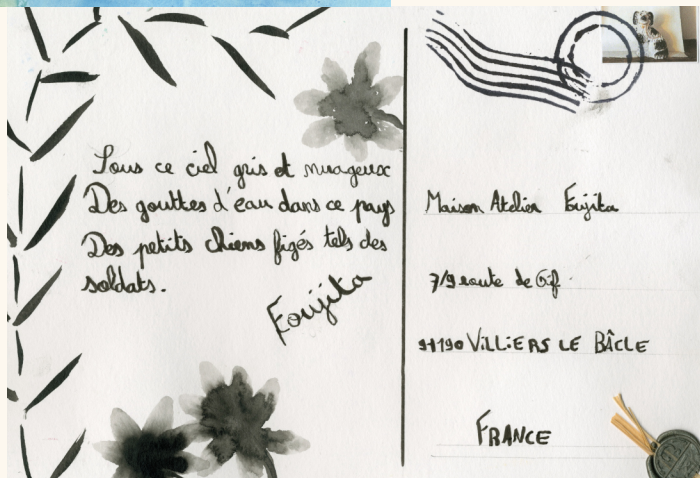 Sous ce ciel gris et nuageux
Des gouttes d'eau dans ce pays
Des petits chiens figés tels des
soldats.
Foujita
Maison Atelier Foujita
7/9 route de Gif
91190 VILLIERS LE BÂCLE
FRANCE